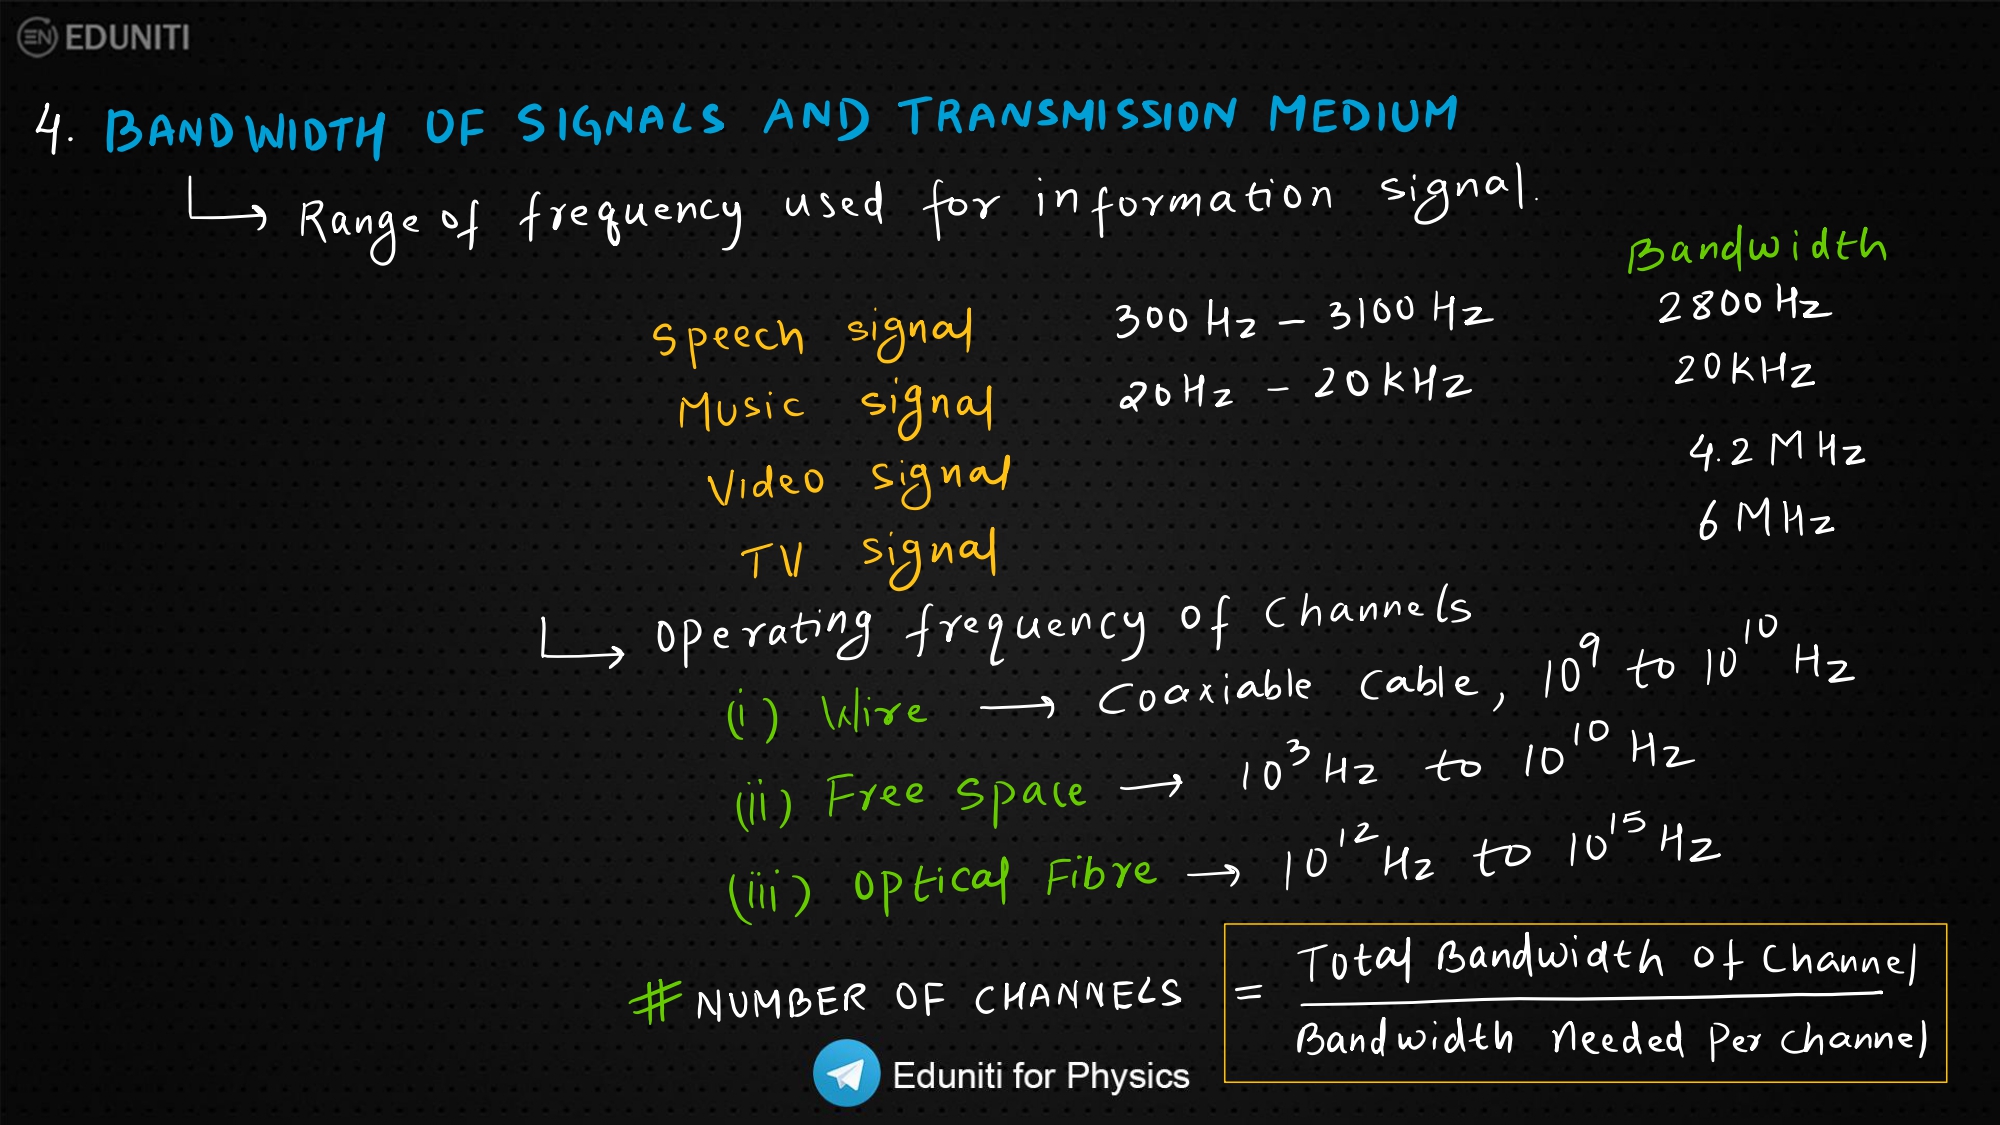 EN EDUNITI
4. BANDWIDTH OF SIGNALS AND TRANSMISSION MEDIUM
Range of frequency used for information signal.
Bandwidth
Speech signal 300 Hz – 3100 Hz 2800 Hz
Music signal 20 Hz – 20 kHz 20 KHz
Video signal 4.2 MHz
TV signal 6 MHz
Operating frequency of Channels
(i) Wire → Coaxiable Cable, 10⁹ to 10¹⁰ Hz
(ii) Free Space → 10³ Hz to 10¹⁰ Hz
(iii) Optical Fibre → 10¹² Hz to 10¹⁵ Hz
# NUMBER OF CHANNELS = Total Bandwidth of Channel
Bandwidth Needed Per Channel
Eduniti for Physics